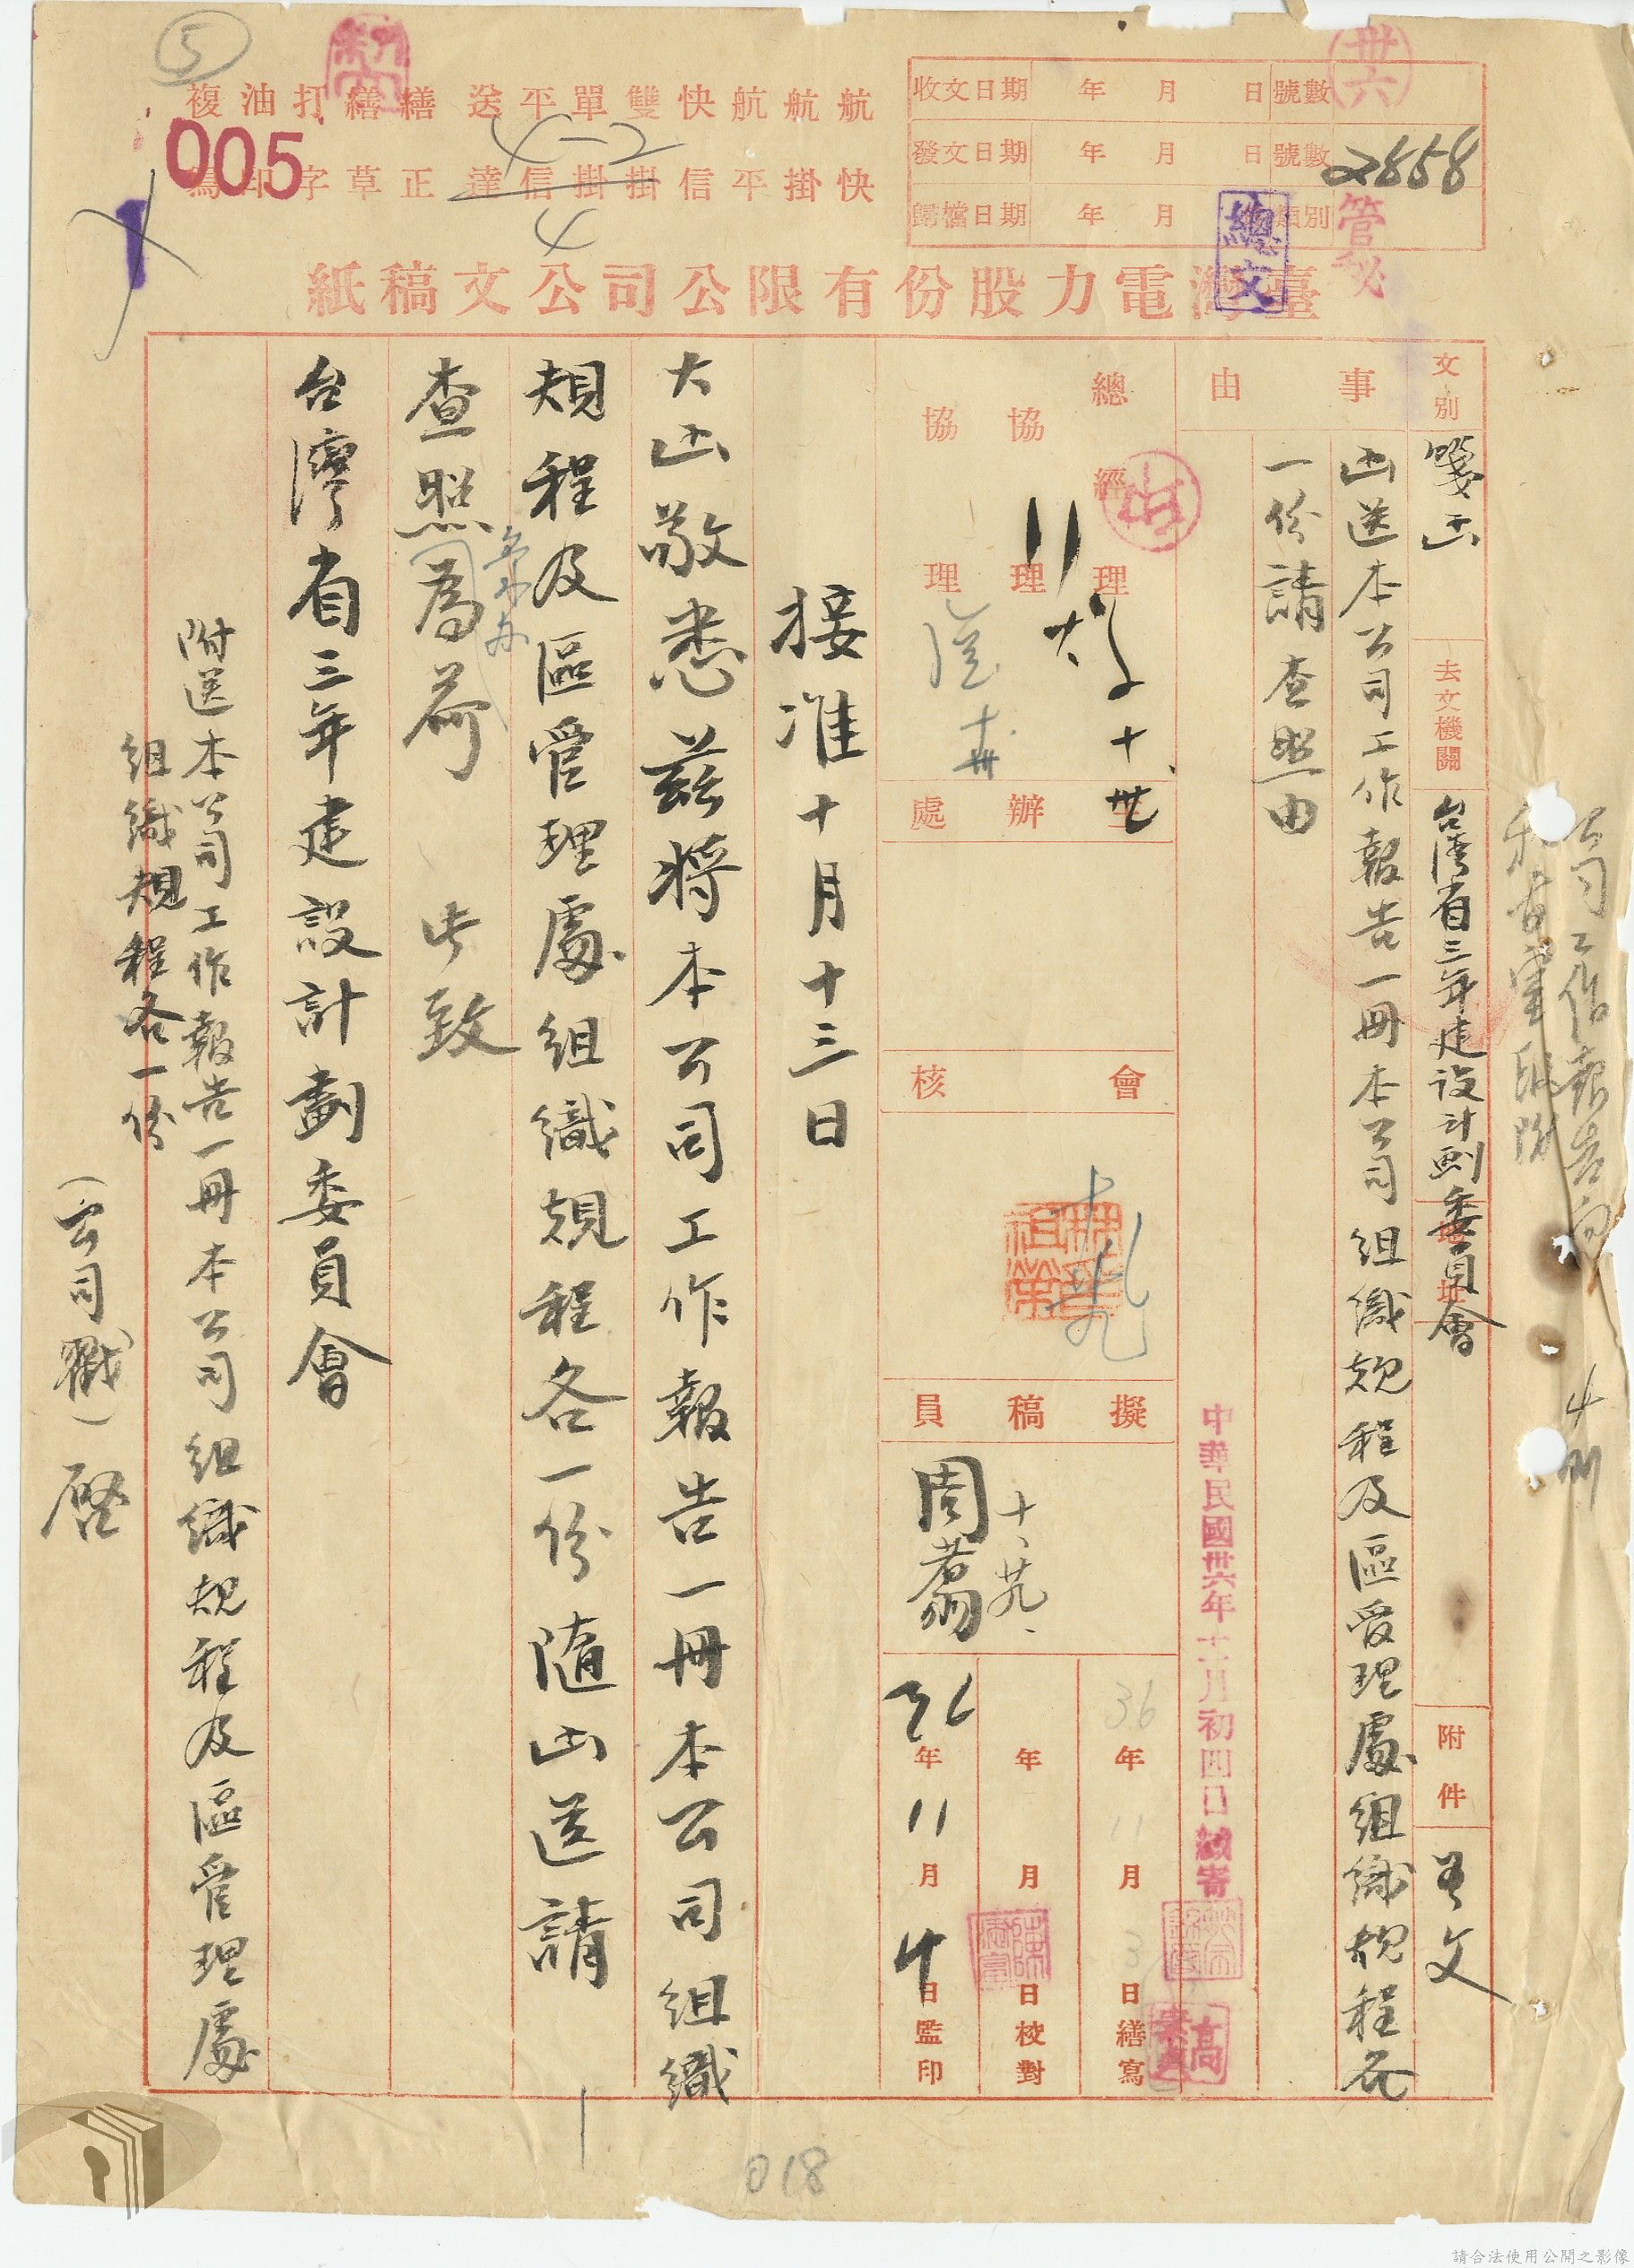 收文日期 年 月 日 號數
發文日期 年 月 日 號數 2858
歸檔日期 年 月 類別
卅六
管秘
總文
航航航快雙單平送繕繕打油複
快掛平信掛掛信達正草字印寫
4-2
4
005
5
1
臺灣電力股份有限公司公文稿紙
文別 箋函
去文機關 台灣省三年建設計劃委員會
地址
附件 另文
事由
函送本公司工作報告一冊本公司組織規程及區管理處組織規程各
一份請查照由
中華民國卅六年十一月初四日 寄
總經理
協理
協理
主辦處
會核
擬稿員 周蓊 十、廿九、
36年11月3日繕寫
年 月 日校對
36年11月4日監印
接准十月十三日
大函敬悉茲將本公司工作報告一冊本公司組織
規程及區管理處組織規程各一份隨函送請
查照為荷 此致
台灣省三年建設計劃委員會
附送本公司工作報告一冊本公司組織規程及區管理處
組織規程各一份
(公司戳)啓
018
請合法使用公開之影像